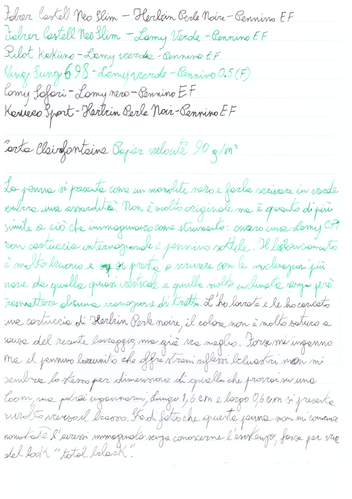 Faber Castell Neo Slim - Herbin Perle Noire - Pennino EF
Faber Castell Neo Slim - Lamy Verde - Pennino EF
Pilot Kakuno - Lamy verde - Pennino EF
Wing Sung 698 - Lamy verde - Pennino 0.5 (F)
Lamy Safari - Lamy nero - Pennino EF
Kaweco Sport - Herbin Perle Noir - Pennino EF
Carta Clairefontaine Paper velouté 90 g/m²
La penna si presenta come un monolite nero e farla scrivere in verde
sembra una assurdità. Non è molto originale ma è quanto di più
simile a ciò che immaginavo come strumento: ovvero una Lamy
con cartuccia internazionale e pennino sottile. Il bilanciamento
è molto buono e si presta a scrivere con le inclinazioni più
varie da quella quasi verticale a quella molto inclinata senza però
trasmettere alcuna variazione di tratto. L'ho lavata e le ho caricato
una cartuccia di Herbin Perle noire, il colore non è molto saturo a
causa del recente lavaggio, ma già va meglio. Forse mi inganno
ma il pennino brunito che offre strani riflessi bluastri non mi
sembra lo stesso per dimensione di quello che provai in una
Loom, ma potrei ingannarmi. Lungo 1,6 cm e largo 0,6 cm si presenta
rivolto verso il basso. Fatto è che questa penna non mi
nonostante l'avessi immaginata senza conoscerne l'esistenza, forse per via
del look "total black".